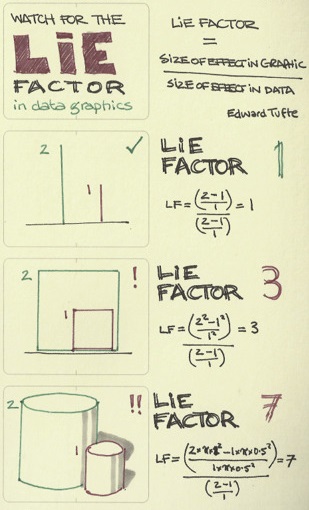 WATCH FOR THE
LiE
FACTOR
in data graphics
LiE FACTOR
=
SIZE OF EFFECT IN GRAPHIC
SIZE OF EFFECT IN DATA
Edward Tufte
2
1
✓
LiE
FACTOR
1
LF = (2-1
1) = 1
(2-1
1)
2
1
!
LiE
FACTOR
3
LF = (2²-1²
1²) = 3
(2-1
1)
2
1
!!
LiE
FACTOR
7
LF = (2×π×1² - 1×π×0.5²
1×π×0.5²) = 7
(2-1
1)